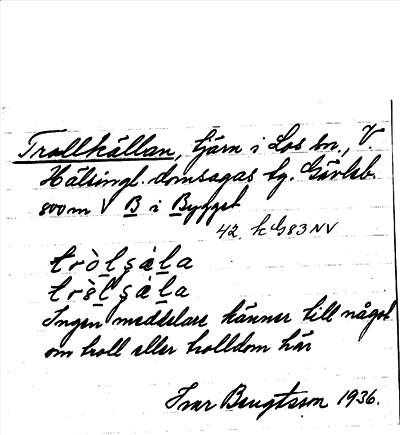 Trollkällan, tjärn i Los sn., V.
Hälsingl. domsagas tg. Gävleb.
800 m V B i Bygget
42. kG83 NV
tròlşàla
trèlşàla
Ingen meddelare känner till något
om troll eller trolldom här
Ivar Bengtsson 1936.